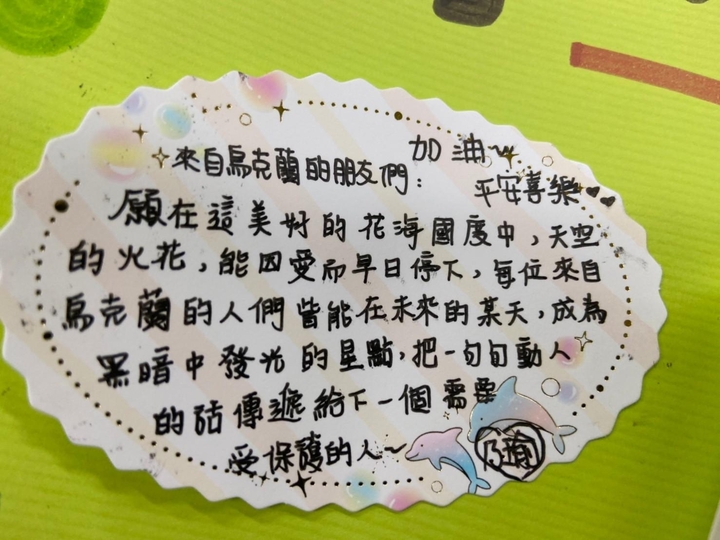 來自烏克蘭的朋友們：
加油～
平安喜樂
願在這美好的花海國度中，天空
的火花，能因愛而早日停下，每位來自
烏克蘭的人們皆能在未來的某天，成為
黑暗中發光的星點，把一句句動人
的話傳遞給下一個需要
受保護的人～
乃瑜